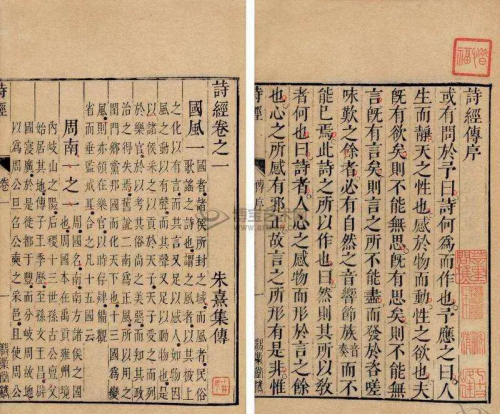 詩經傳序
或有問於予曰詩何為而作也予應之曰人
生而靜天之性也感於物而動性之欲也夫
既有欲矣則不能無思既有思矣則不能無
言既有言矣則言之所不能盡而發於咨嗟
味歎之餘者必有自然之音響節族音奏而不
能已焉此詩之所以作也曰然則其所以教
者何也曰詩者人心之感物而形於言之餘
也心之所感有邪正故言之所形有是非惟
詩經
傳序
詩經卷之一
朱熹集傳
國風一 國者諸侯所封之域而風者民俗
歌謠之詩也謂之風者以其被上
之化以有言而其言又足以感人如物因
風之動以有聲而其聲又足以動物也是
以諸侯采之以貢於天子天子受之而列
於樂官於以考其俗尚之美惡而知其政
治之得失焉舊說二南為正風所以用之
閨門鄉黨邦國而化天下也十三國為變
風則亦領在樂官以時存肄備觀
省而垂監戒耳合之凡十五國云
周南一之一 周國名南南方諸侯之國
也周國本在禹貢雍州境
內岐山之陽后稷十三世孫古公亶父
始居其地傳子王季歷至孫文王昌辟
國寖廣於是徙都于豐而分岐周故地
以為周公旦召公奭之采邑且使周公
詩經
卷一